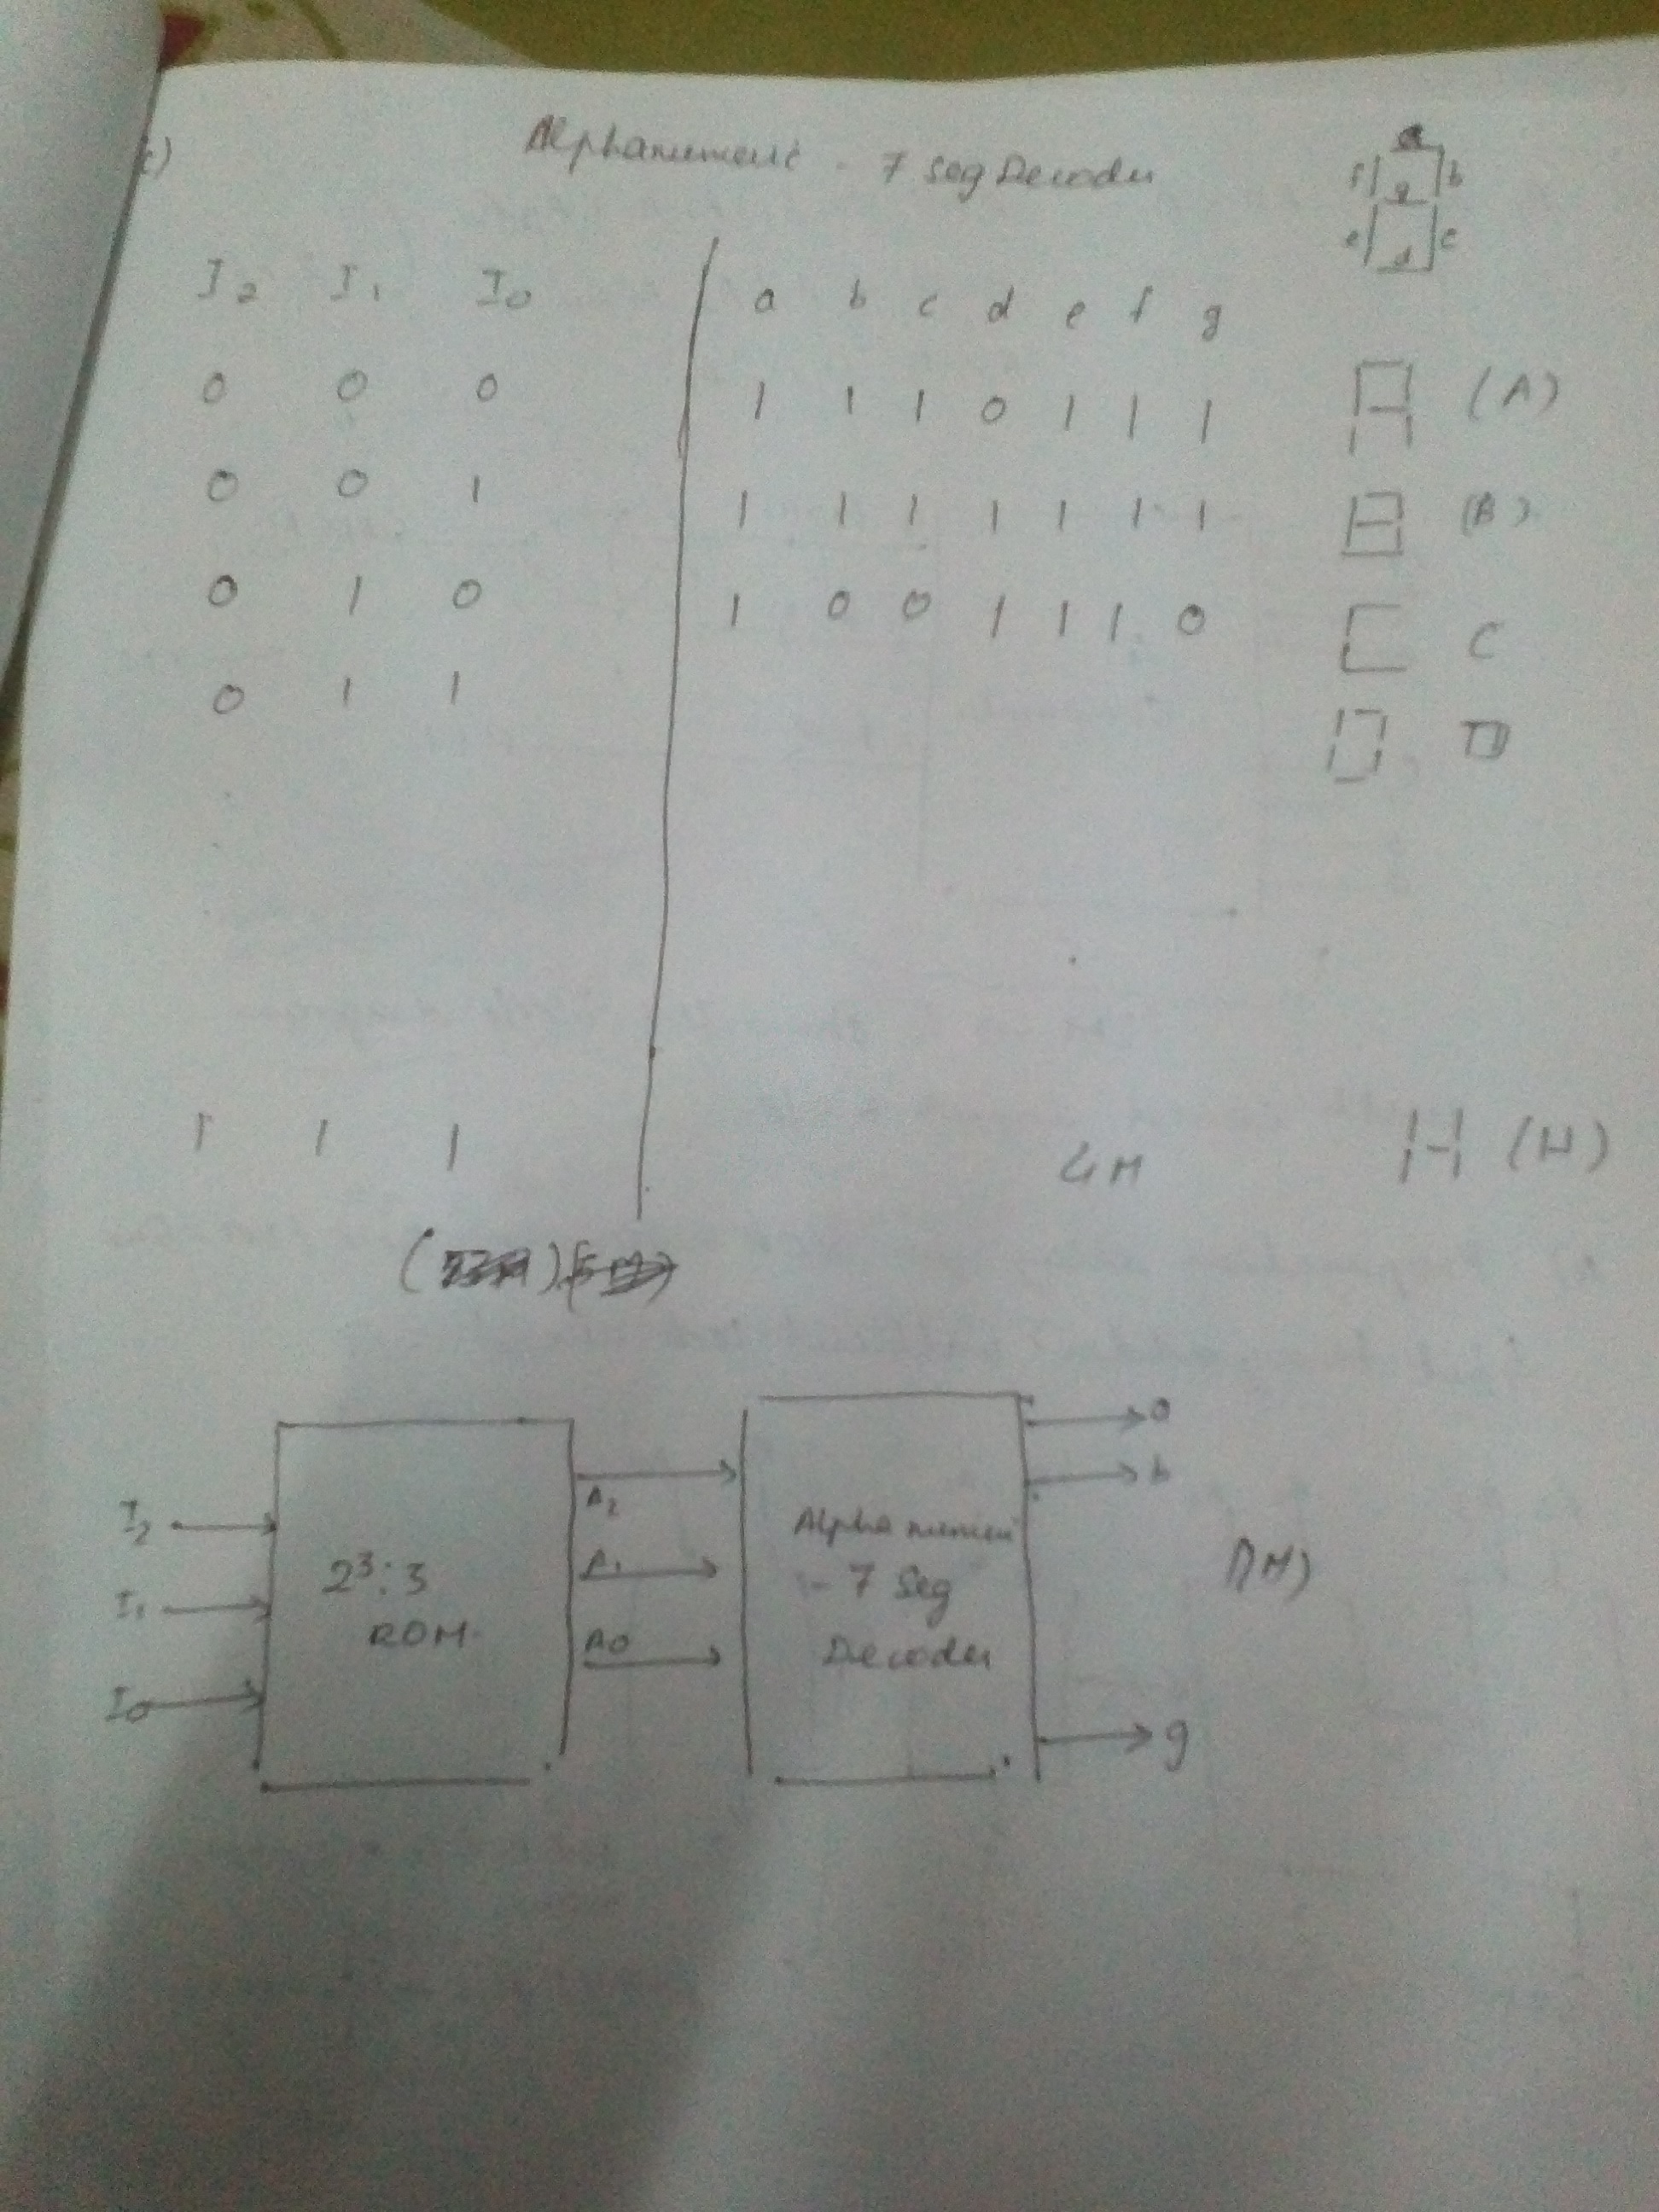 Alphanumeric - 7 seg Decoder
a
f g b
e d c
I2 I1 I0 a b c d e f g
0 0 0 1 1 1 0 1 1 1 (A)
0 0 1 1 1 1 1 1 1 1 (B)
0 1 0 1 0 0 1 1 1 0 C
0 1 1 D
1 1 1 4M (H)
I2
I1
I0
2³:3
ROM
A2
A1
A0
Alphanumeri
- 7 Seg
Decoder
a
b
g